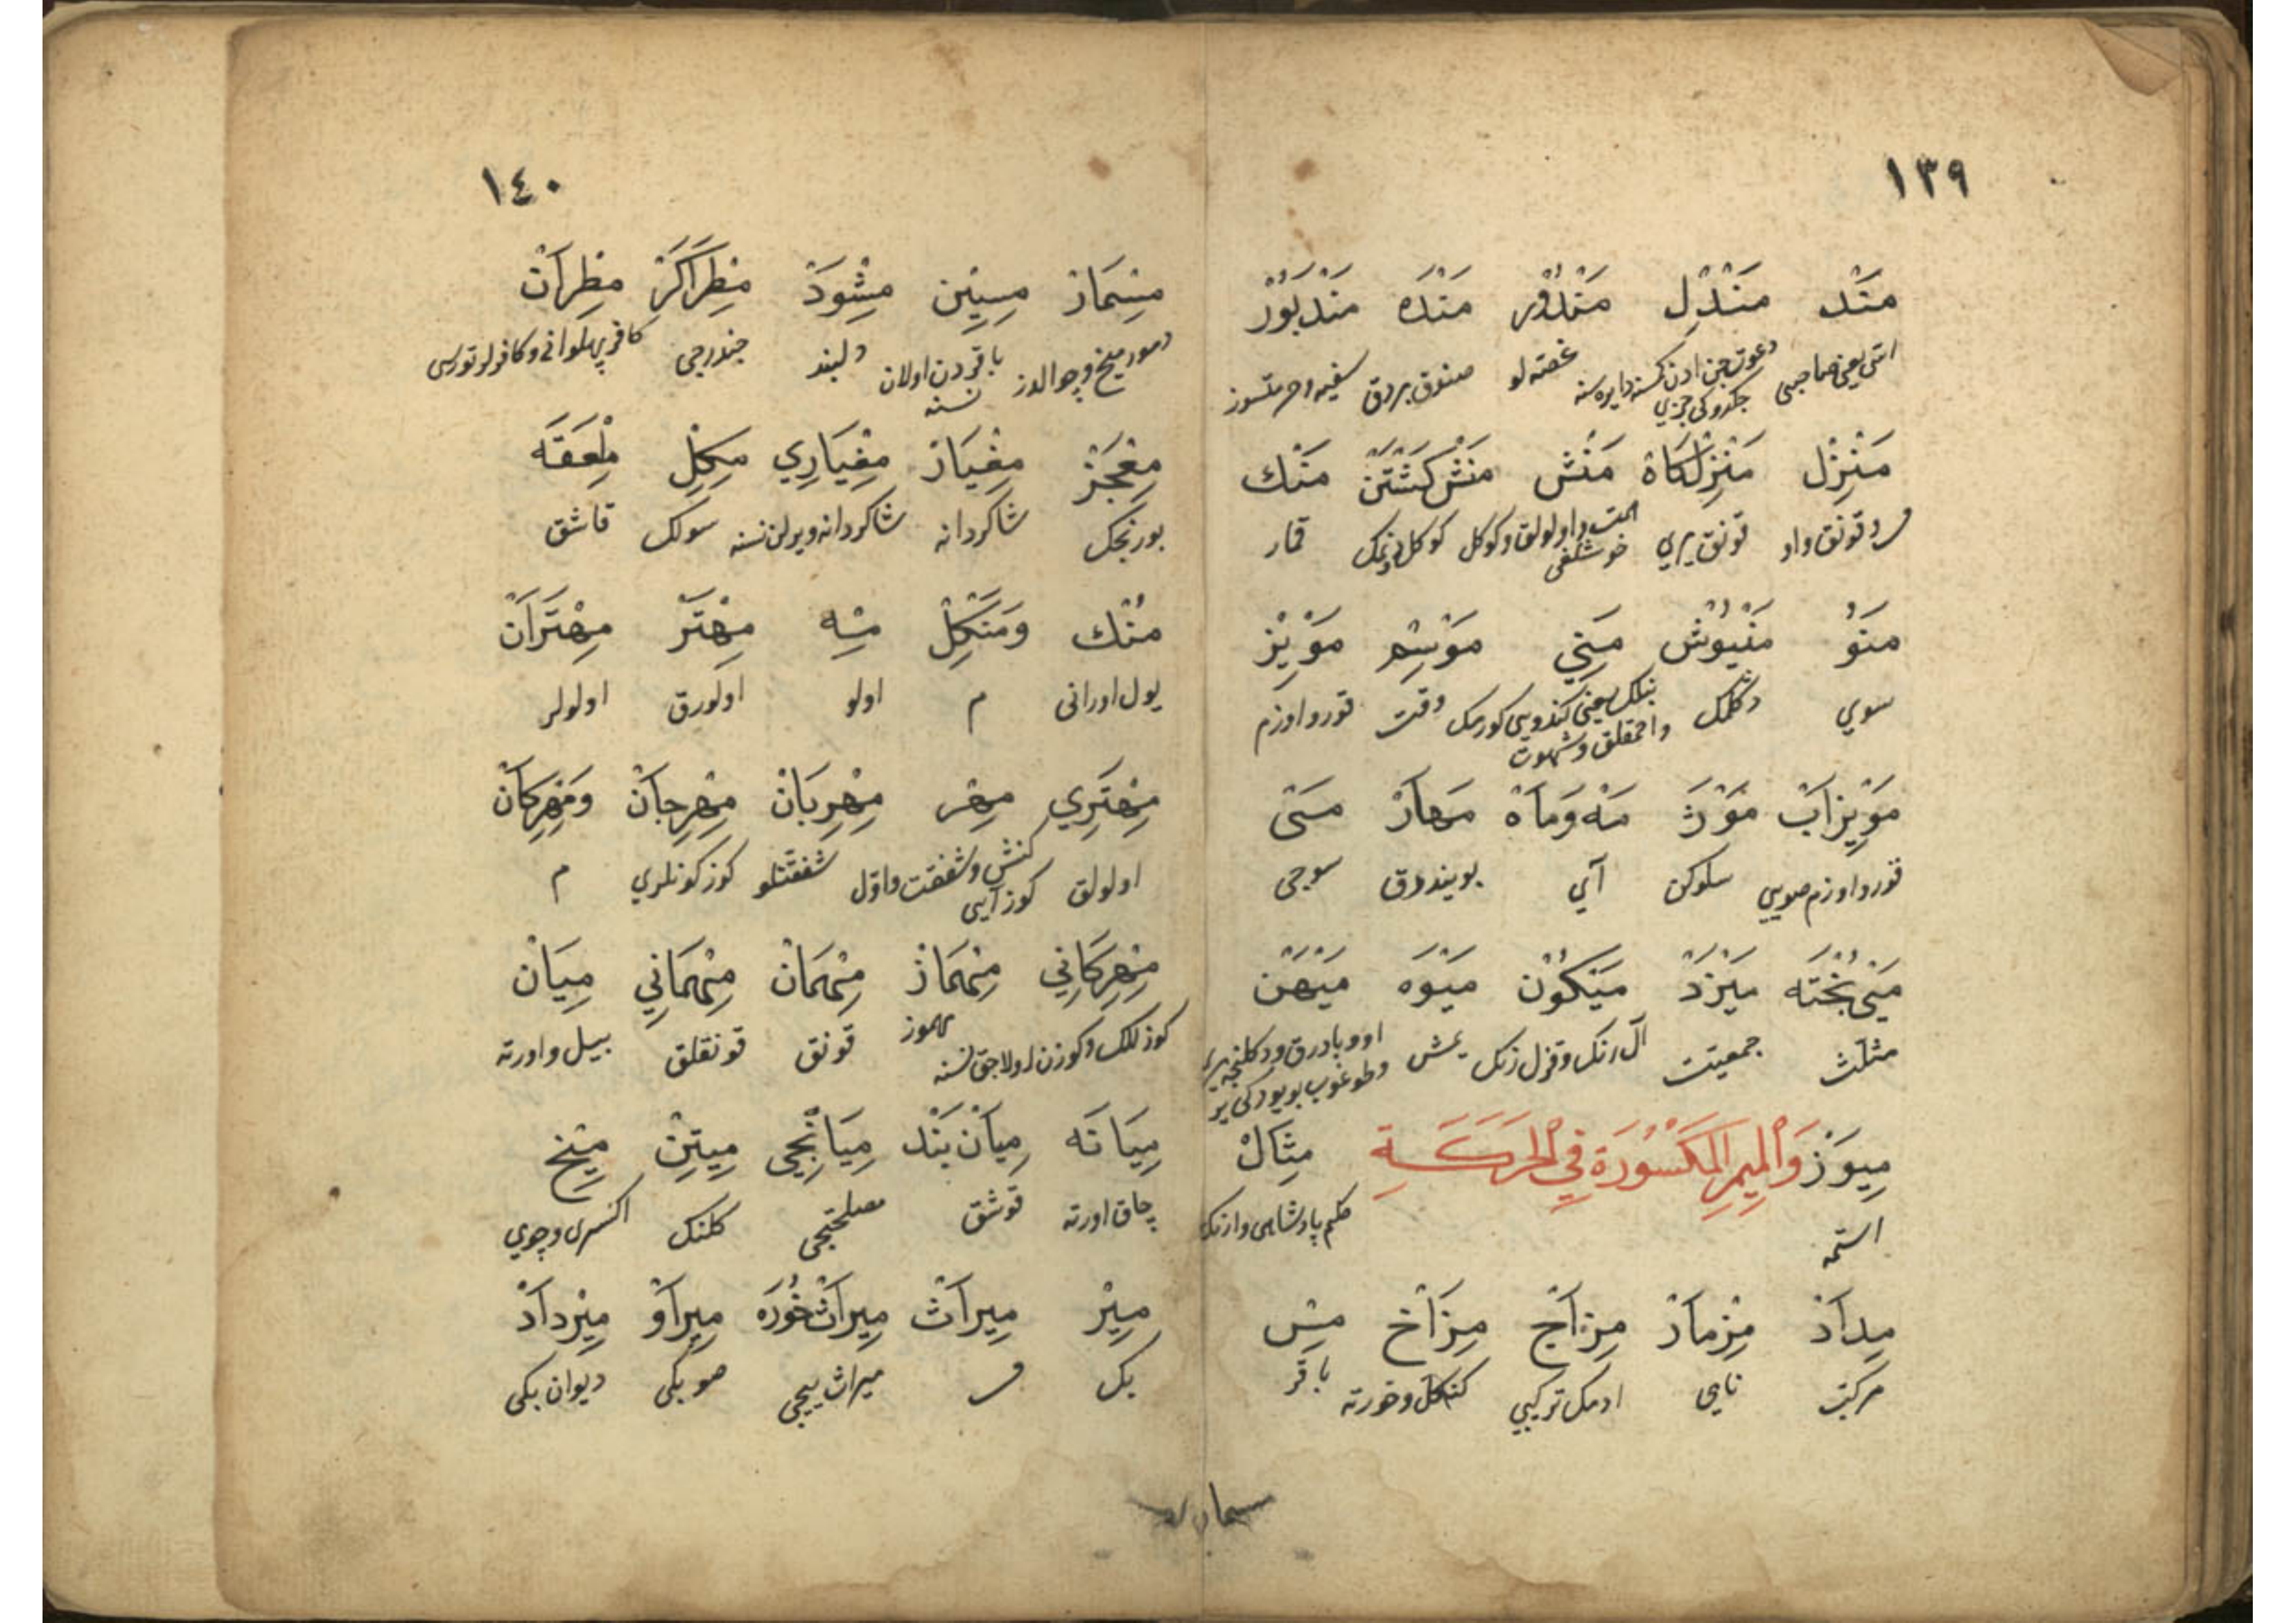 ١٣٩
مَنْد مَنْدَلْ مَنْدُوْر مَنْدَه مَنْدَبُوْرْ
اتى يعنى صاحبى دعوت جن ادن كسنه دايره سنه جكدوكى جزى غصه لو صنوق بردق سفيه وحرمتسوز
مَنْزِلْ مَنْزِلْكَاهْ مَنِشْ مَنِشْ كَشْتَنْ مَنْك
قونق واو قونق يرى همت واولولق وكوكل خوشلغى كوكل دونمك قمار
مَنُوْ مَنْيُوْش مَنِي مَوْسِم مَوْيِز
سوى دكلمك بنلك يعنى كندوسى كورمك واحمقلق وشهوت وقت قورو اوزم
مَوْيِزَابْ مَوْرَدْ مَهْ وَمَاهْ مَهَارْ مَىْ
قورو اوزم صويى سلوكن آى بويندورق سوجى
مَىْ پُخْتَه مَيَزْدْ مَيْكُوْن مَيْوَه مَيْهَنْ
مثلث جمعيت آل رنك وقزل رنك يمش او وبادرق ودكلنجه يرى وطوغوب بويودكى ير
مِيوَزْ وَالْمِيمِ الْمَكْسُورَةِ فِي الْحَرَكَةِ مِثَالْ
استمه حكم پادشاهى وارنك
مِدَادْ مِزْمَارْ مِزَاجْ مِزَاخْ مِسْ
مركب ناى ادمك تركيبى كنكل وخورته باقر
١٤٠
مِسْمَارْ مِسِيْن مِشْوَدْ مِطْرَاكَرْ مِطْرَانْ
دمور ميخ وچوالدز باقردن اولان نسنه دلبند جندرجى كافر پهلوانى وكافرلر تورسى
مِعْجَرْ مِغْيَازْ مِغْيَازِي مِكِلْ مِلْعَقَه
بورنجك شاكردانه شاكردانه ويرلن نسنه سولك قاشق
مِنْك وَمَنْكِلْ مِه مِهْتَرْ مِهْتَرَانْ
يول اورانى م اولو اولورق اولولر
مِهْتَرِي مِهْر مِهْرِبَانْ مِهْرِجَانْ وَمِهْرِكَانْ
اولولق كنش وشفقت واول كوز آيى شفقتلو كوز كونلرى م
مِهْرِكَانِي مِهْمَازْ مِهْمَانْ مِهْمَانِي مِيَانْ
كوزللك وكوزن اولاجق نسنه مهموز قونق قونقلق بيل واورته
مِيَانَه مِيَانْ بَنْد مِيَانْجِى مِيتِيْن مِيْخ
چاق اورته قوشق مصلحتجى كلنك اكسرى وچوى
مِيْر مِيرَاثْ مِيرَاثْ خُورَه مِيرَاوْ مِيْردَادْ
بك ميراث ييجى صو بكى ديوان بكى